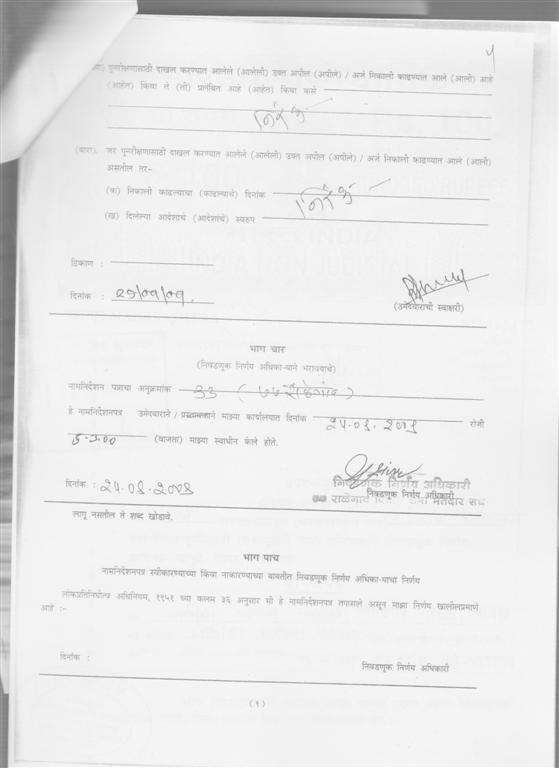 ५
पुनरीक्षणासाठी दाखल करण्यात आलेले (आलेली) उक्त अपील (अपीले) / अर्ज निकाली काढण्यात आले (आली) आहे
(आहेत) किंवा ते (ती) प्रलंबित आहे (आहेत) किंवा कसे
निरंक
(बारा). जर पुनरीक्षणासाठी दाखल करण्यात आलेले (आलेली) उक्त अपील (अपीले) / अर्ज निकाली काढण्यात आले (आली)
असतील तर-
(क) निकाली काढल्याचा (काढल्याचे) दिनांक
निरंक
(ख) दिलेल्या आदेशाचे (आदेशांचे) स्वरुप
ठिकाण :
दिनांक : २५/०९/०९.
(उमेदवाराची स्वाक्षरी)
भाग चार
(निवडणूक निर्णय अधिका-याने भरावयाचे)
नामनिर्देशन पत्राचा अनुक्रमांक ३३ ( ७७ राळेगांव )
हे नामनिर्देशनपत्र उमेदवाराने / प्रस्तावकाने माझ्या कार्यालयात दिनांक २५.०९.२००९ रोजी
(वाजता) माझ्या स्वाधीन केले होते.
दिनांक : २५.०९.२००९
निवडणूक निर्णय अधिकारी
निवडणूक निर्णय अधिकारी
राळेगाव मतदार संघ
लागू नसतील ते शब्द खोडावे.
भाग पाच
नामनिर्देशनपत्र स्वीकारण्याच्या किंवा नाकारण्याच्या बाबतीत निवडणूक निर्णय अधिका-याचा निर्णय
लोकप्रतिनिधीत्व अधिनियम, १९५१ च्या कलम ३६ अनुसार मी हे नामनिर्देशनपत्र तपासले असून माझा निर्णय खालीलप्रमाणे
आहे :-
दिनांक :
निवडणूक निर्णय अधिकारी
(९)